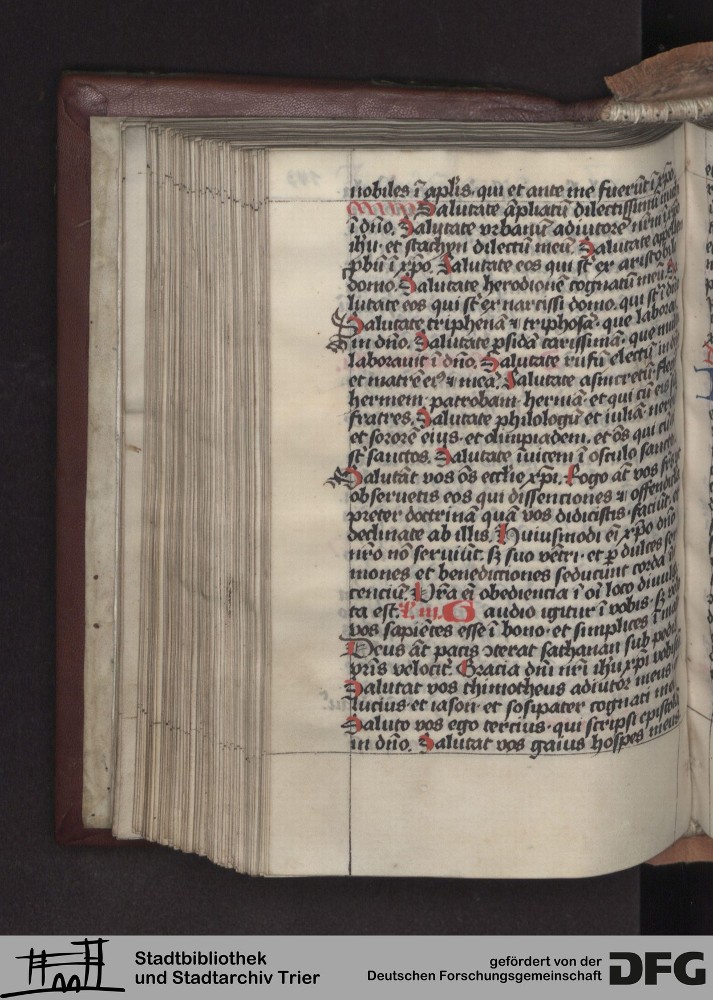 nobiles ī aplīs. qui et ante me fuerūt ī xp̄o
Salutate āpliatū dilectissimū
ī dn̄o. Salutate vrbanū adiutorē nr̄m ī xp̄o
ih̄u. et stachyn dilectū meū. Salutate appellen
pbū ī xp̄o. Salutate eos qui st̄ ex aristoboli
domo. Salutate herodionē cognatū meū. Sa
lutate eos qui st̄ ex narcissi domo. qui st̄ ī dn̄o
Salutate triphenā ⁊ triphosā. que laborāt
in dn̄o. Salutate psidā carissimā. que multū
laborauit ī dn̄o. Salutate rufū electū in dn̄o
et matrē eiꝰ ⁊ meā. Salutate asincretū. fleg
hermem. patrobam. hermā. et qui cū eis st̄
fratres. Salutate philologū et iuliā. nereū
et sororē eius. et olimpiadem. et ōs qui cū
st̄ sanctos. Salutate īuicem ī osculo sancto
Salutāt vos ōs ecctīe xp̄i. Rogo āt vos fr̄es
obseruetis eos qui dissenciones ⁊ offendicula
preter doctrinā quā vos didicistis. faciūt. et
declinate ab illis. Huiusmodi ei xp̄o dn̄o
nr̄o nō seruiūt. sꝫ suo vētri. et ꝑ dulces ser
mones et benedictiones seducunt corda ī
cenciū. Vr̄a ei obediencia ī oī loco diuulga
ta est. Gaudio igitur ī vobis. sꝫ volo
vos sapiētes esse ī bono. et simplices ī malo
Deus āt pacis ɔterat sathanan sub pedibꝫ
vr̄is velocit̄. Gracia dn̄i nr̄i ih̄u xp̄i vobiscū
Salutat vos thimotheus adiutor meus
lucius et iason et sosipater cognati mei
Saluto vos ego tercius. qui scripsi epistolā
in dn̄o. Salutat vos gaius hospes meus
Stadtbibliothek
und Stadtarchiv Trier
gefördert von der
Deutschen Forschungsgemeinschaft
DFG